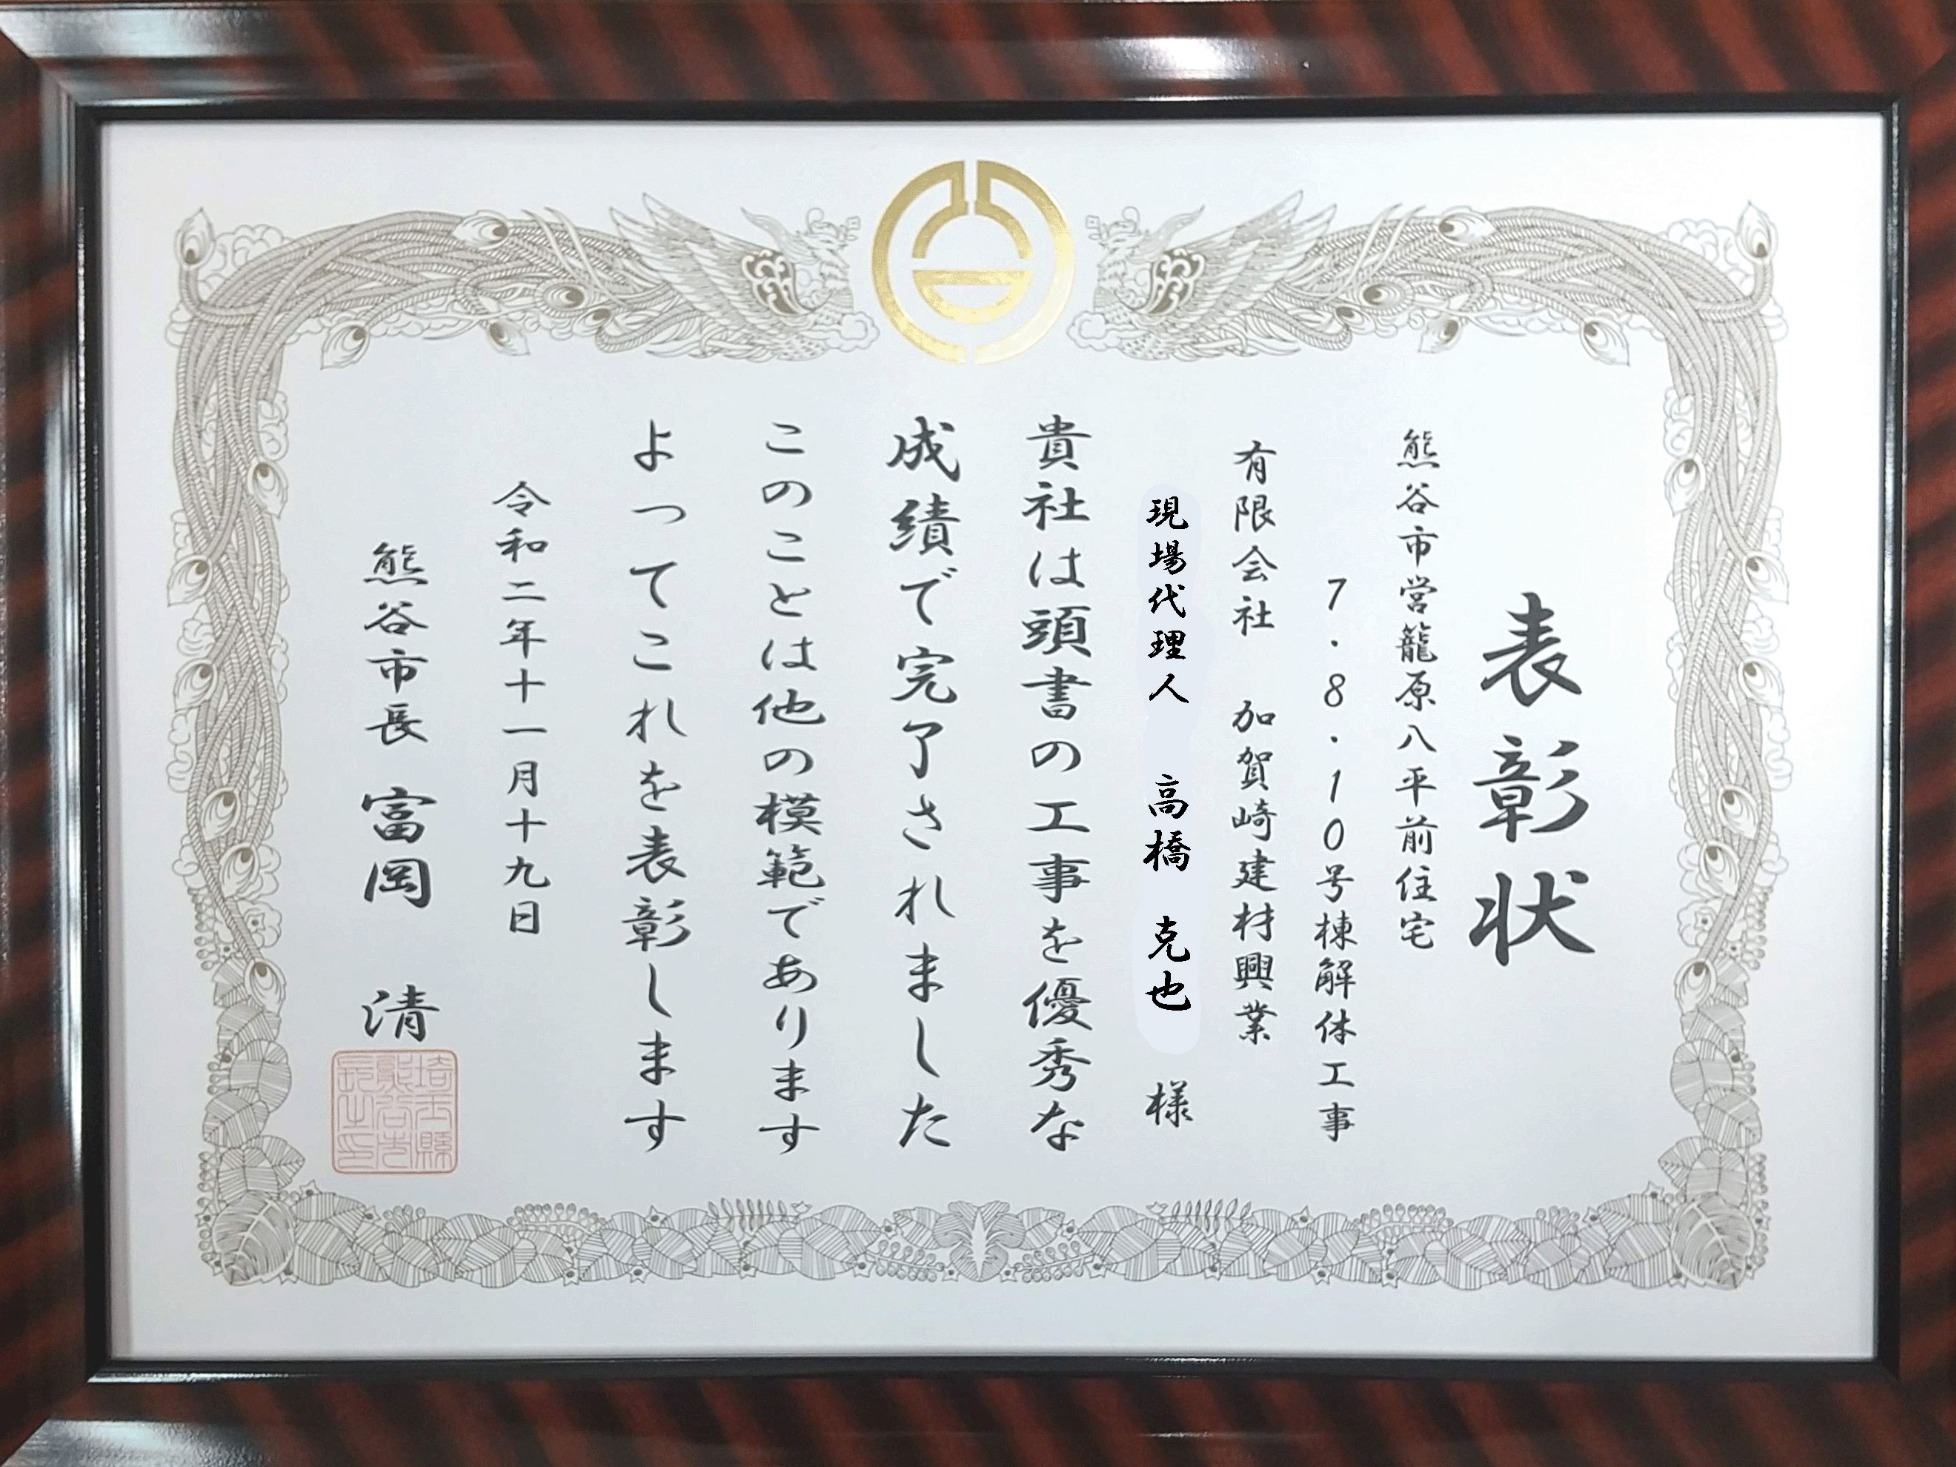 表彰状
熊谷市営籠原八平前住宅
7・8・10号棟解体工事
有限会社　加賀崎建材興業
現場代理人　高橋　克也　様
貴社は頭書の工事を優秀な
成績で完了されました
このことは他の模範であります
よってこれを表彰します
令和二年十一月十九日
熊谷市長　富岡　清
埼玉縣
熊谷市
長之印